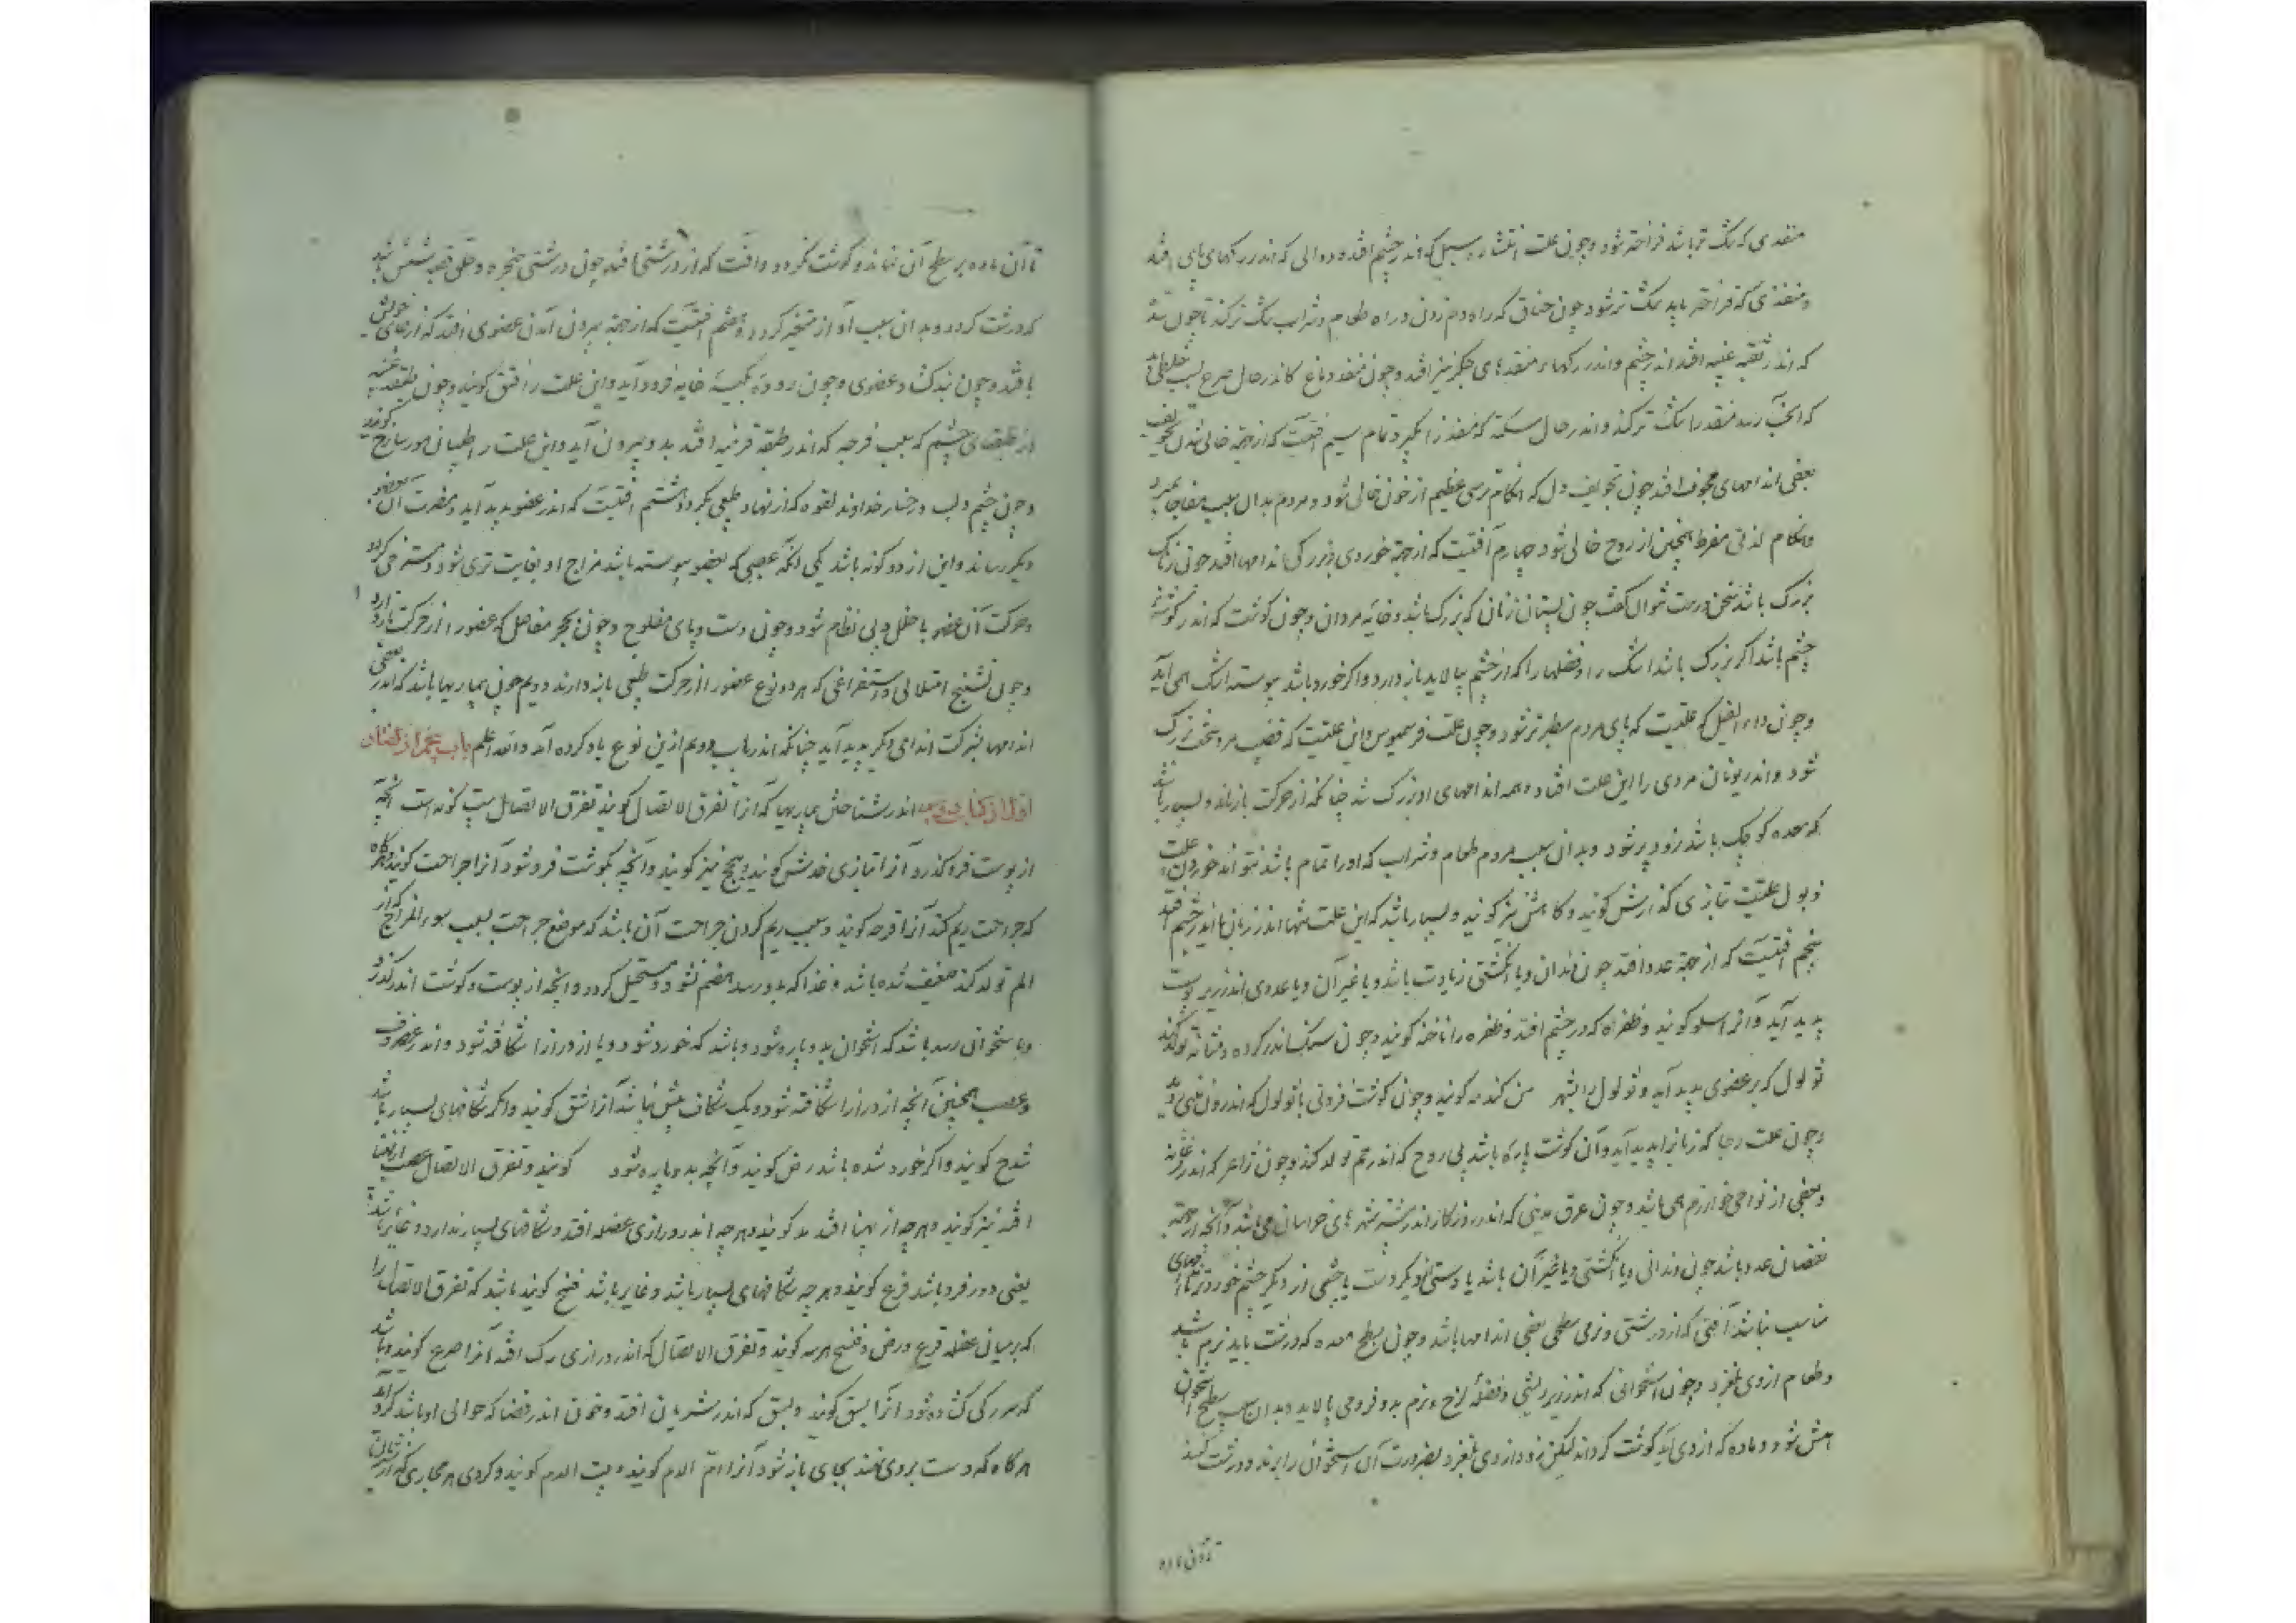 منفذی که تنک تر باشد فراخته شود و چون علت انتشار و سبل که اندر چشم افتد و دوالی که اندر رکهای پای افتد
و منفذی که فراختر باید تنک تر شود چون خناق که راه دم زدن و راه طعام و شراب تنک تر کند تا چون سده
که اندر ثقبه عنبیه افتد اندر چشم و اندر رکها و منفذهای جکر نیز افتد و چون منفذ دماغ کاندر حال صرع بسبب خلطی
که آنجا رسد منفذ را تنک تر کند و اندر حال سکته که منفذ را بگیرد تمام سیم آفتیست که از جهة خالی شدن تجویف
بعضی اندامهای مجوف افتد چون تجویف دل که هنکام ترسی عظیم از خون خالی شود و مردم بدان سبب مفاجا بمیرد
و هنکام لذتی مفرط همچنین از روح خالی شود چهارم آفتیست که از جهة خوردی و بزرکی اندامها افتد چون زبانک
بزرک باشد سخن درست نتوان گفت چون پستان زنان که بزرک باشد و خایه مردان و چون کوشت که اندر کوشه
چشم باشد اکر بزرک باشد اشک را و فضلها را که از چشم بپالاید باز دارد و اکر خورد باشد پیوسته اشک همی آید
و چون داء الفیل که علتیست که پای مردم سطبرتر شود و چون علت فرسمیوس و این علتیست که قضیب مرد سخت بزرک
شود و اندر یونان مردی را این علت افتاد و همه اندامهای او بزرک شد چنانکه از حرکت باز ماند و بسیار باشد
که معده کوچک باشد زود پر شود و بدان سبب مردم طعام و شراب که او را تمام باشد نتواند خوردن و علت
ذبول علتیست بتازی کدازش کویند و کاهش نیز کویند و بسیار باشد که این علت تنها اندر زبان یا اندر چشم افتد
پنجم آفتیست که از جهة عدد افتد چون دندان و یا انکشتی زیادت باشد و یا غیر آن و یا عددی اندر زیر پوست
پدید آید و آنرا سلع کویند و ظفره که در چشم افتد و ظفره را ناخنه کویند و چون سنک اندر کرده و مثانه تولد کند
ثولول که بر عضوی پدید آید و ثولول را بشهر من کندمه کویند و چون کوشت فزونی یا ثولول که اندرون بینی روید
و چون علت رجا که زنانرا پدید آید و آن کوشت پاره باشد بی روح که اندر رحم تولد کند و چون
و بعضی از نواحی خوارزم همی باشد و چون عرق مدینی که اندر روزکار اندر شهرهای خراسان می باشد و آنچه از جهة
نقصان عدد باشد چون دندانی و یا انکشتی و یا غیر آن باشد یا دستی از دیکر دست یا چشمی از دیکر چشم خوردتر
مناسب نباشد آفتی که از درشتی و نرمی سطح بعضی اندامها باشد و چون سطح معده که درشت باید نرم باشد
و طعام از وی بلغزد و چون استخوانی که اندر زیر ریشی و فضله لزج و نرم بدو فرو می پالاید و بدان سبب سطح استخوان
املس شود و ماده که از وی باید کوشت کرداند لیکن زود از وی بلغزد بضرورت آن استخوان را برند و درشت کنند
تا آن ماده
تا آن ماده بر سطح آن بماند و کوشت کردد و آفت که از درشتی افتد چون درشتی حنجره و حلق و قصبه شش باشد
که درشت کردد و بدان سبب آواز متغیر کردد و هشتم آفتیست که از جهة بیرون آمدن عضوی افتد که از جای خویش
یا افتد و چون نبدکشاد عضوی و چون روده بکیسه خایه فرود آید و این علت را فتق کویند و چون طبقه عنبیه
از طبقهای چشم که بسبب قرحه که اندر طبقه قرنیه افتد بدو بیرون آید و این علت را طبیبان مورسارج کویند
و چون چشم و لب و رخسار خداوند لقوه که از نهاد طبیعی بکردد هشتم آفتیست که اندر عضو پدید آید و مضرت آن بعضو
دیکر رساند و این از دو کونه باشد یکی آنکه عصبی که بعضو پیوسته باشد مزاج او بغایت تری شود و مسترخی کردد
و حرکت آن عضو با خلل و بی نظام شود و چون دست و پای مفلوج و چون تحجر مفاصل که عضو را از حرکت باز دارد
و چون تشنج امتلائی و استفراغی که هر دو نوع عضو را از حرکت طبیعی باز دارند دویم چون بیماریها باشد که اندر بعضی
اندامها بشرکت اندامی دیکر پدید آید چنانکه اندر باب دویم ازین نوع یاد کرده آمد والله اعلم باب پنجم از کفتار
اول از کتاب دویم اندر شناختن بیماریها که آنرا تفرق الاتصال کویند تفرق الاتصال بیست کونه است آنچه
از پوست فرو کذرد آنرا بتازی خدش کویند و سحج نیز کویند و آنچه بکوشت فرو شود آنرا جراحت کویند و هرکاه
که جراحت ریم کند آنرا قرحه کویند و سبب ریم کردن جراحت آن باشد که موضع جراحت بسبب سوء المزاج که از
الم تولد کند ضعیف شده باشد و غذا که بدو رسد هضم نشود و مستحیل کردد و آنچه از پوست و کوشت اندر کذرد
و باستخوان رسد باشد که استخوان بدو پاره شود و باشد که خورد شود و یا از درازا شکافته شود و اندر غضروف
و عصب همچنین آنچه از درازا شکافته شود و یک شکاف بیش نباشد آنرا شق کویند و اکر شکافهای بسیار باشد
شدخ کویند و اکر خورد شده باشد رض کویند و آنچه بدو پاره شود کویند و تفرق الاتصال عصب از پهنا
افتد نیز کویند و هرچه از پهنا افتد کویند و هرچه اندر درازی عضله افتد و شکافهای بسیار ندارد و غایر باشد
یعنی دور فرو باشد فزع کویند و هرچه شکافهای بسیار باشد و غایر باشد فسخ کویند باشد که تفرق الاتصال را
که بر میان عضله قرع و رض و فسخ هرسه کویند و تفرق الاتصال که اندر درازی رک افتد آنرا صرع کویند و باشد
که سر رکی کشاده شود آنرا بسق کویند و بسق که اندر شریان افتد و خون اندر فضا که حوالی او باشد کرد آید
هرکاه که دست بر وی نهند بجای باز شود آنرا ام الدم کویند و کروهی هر مجاری که از شریان